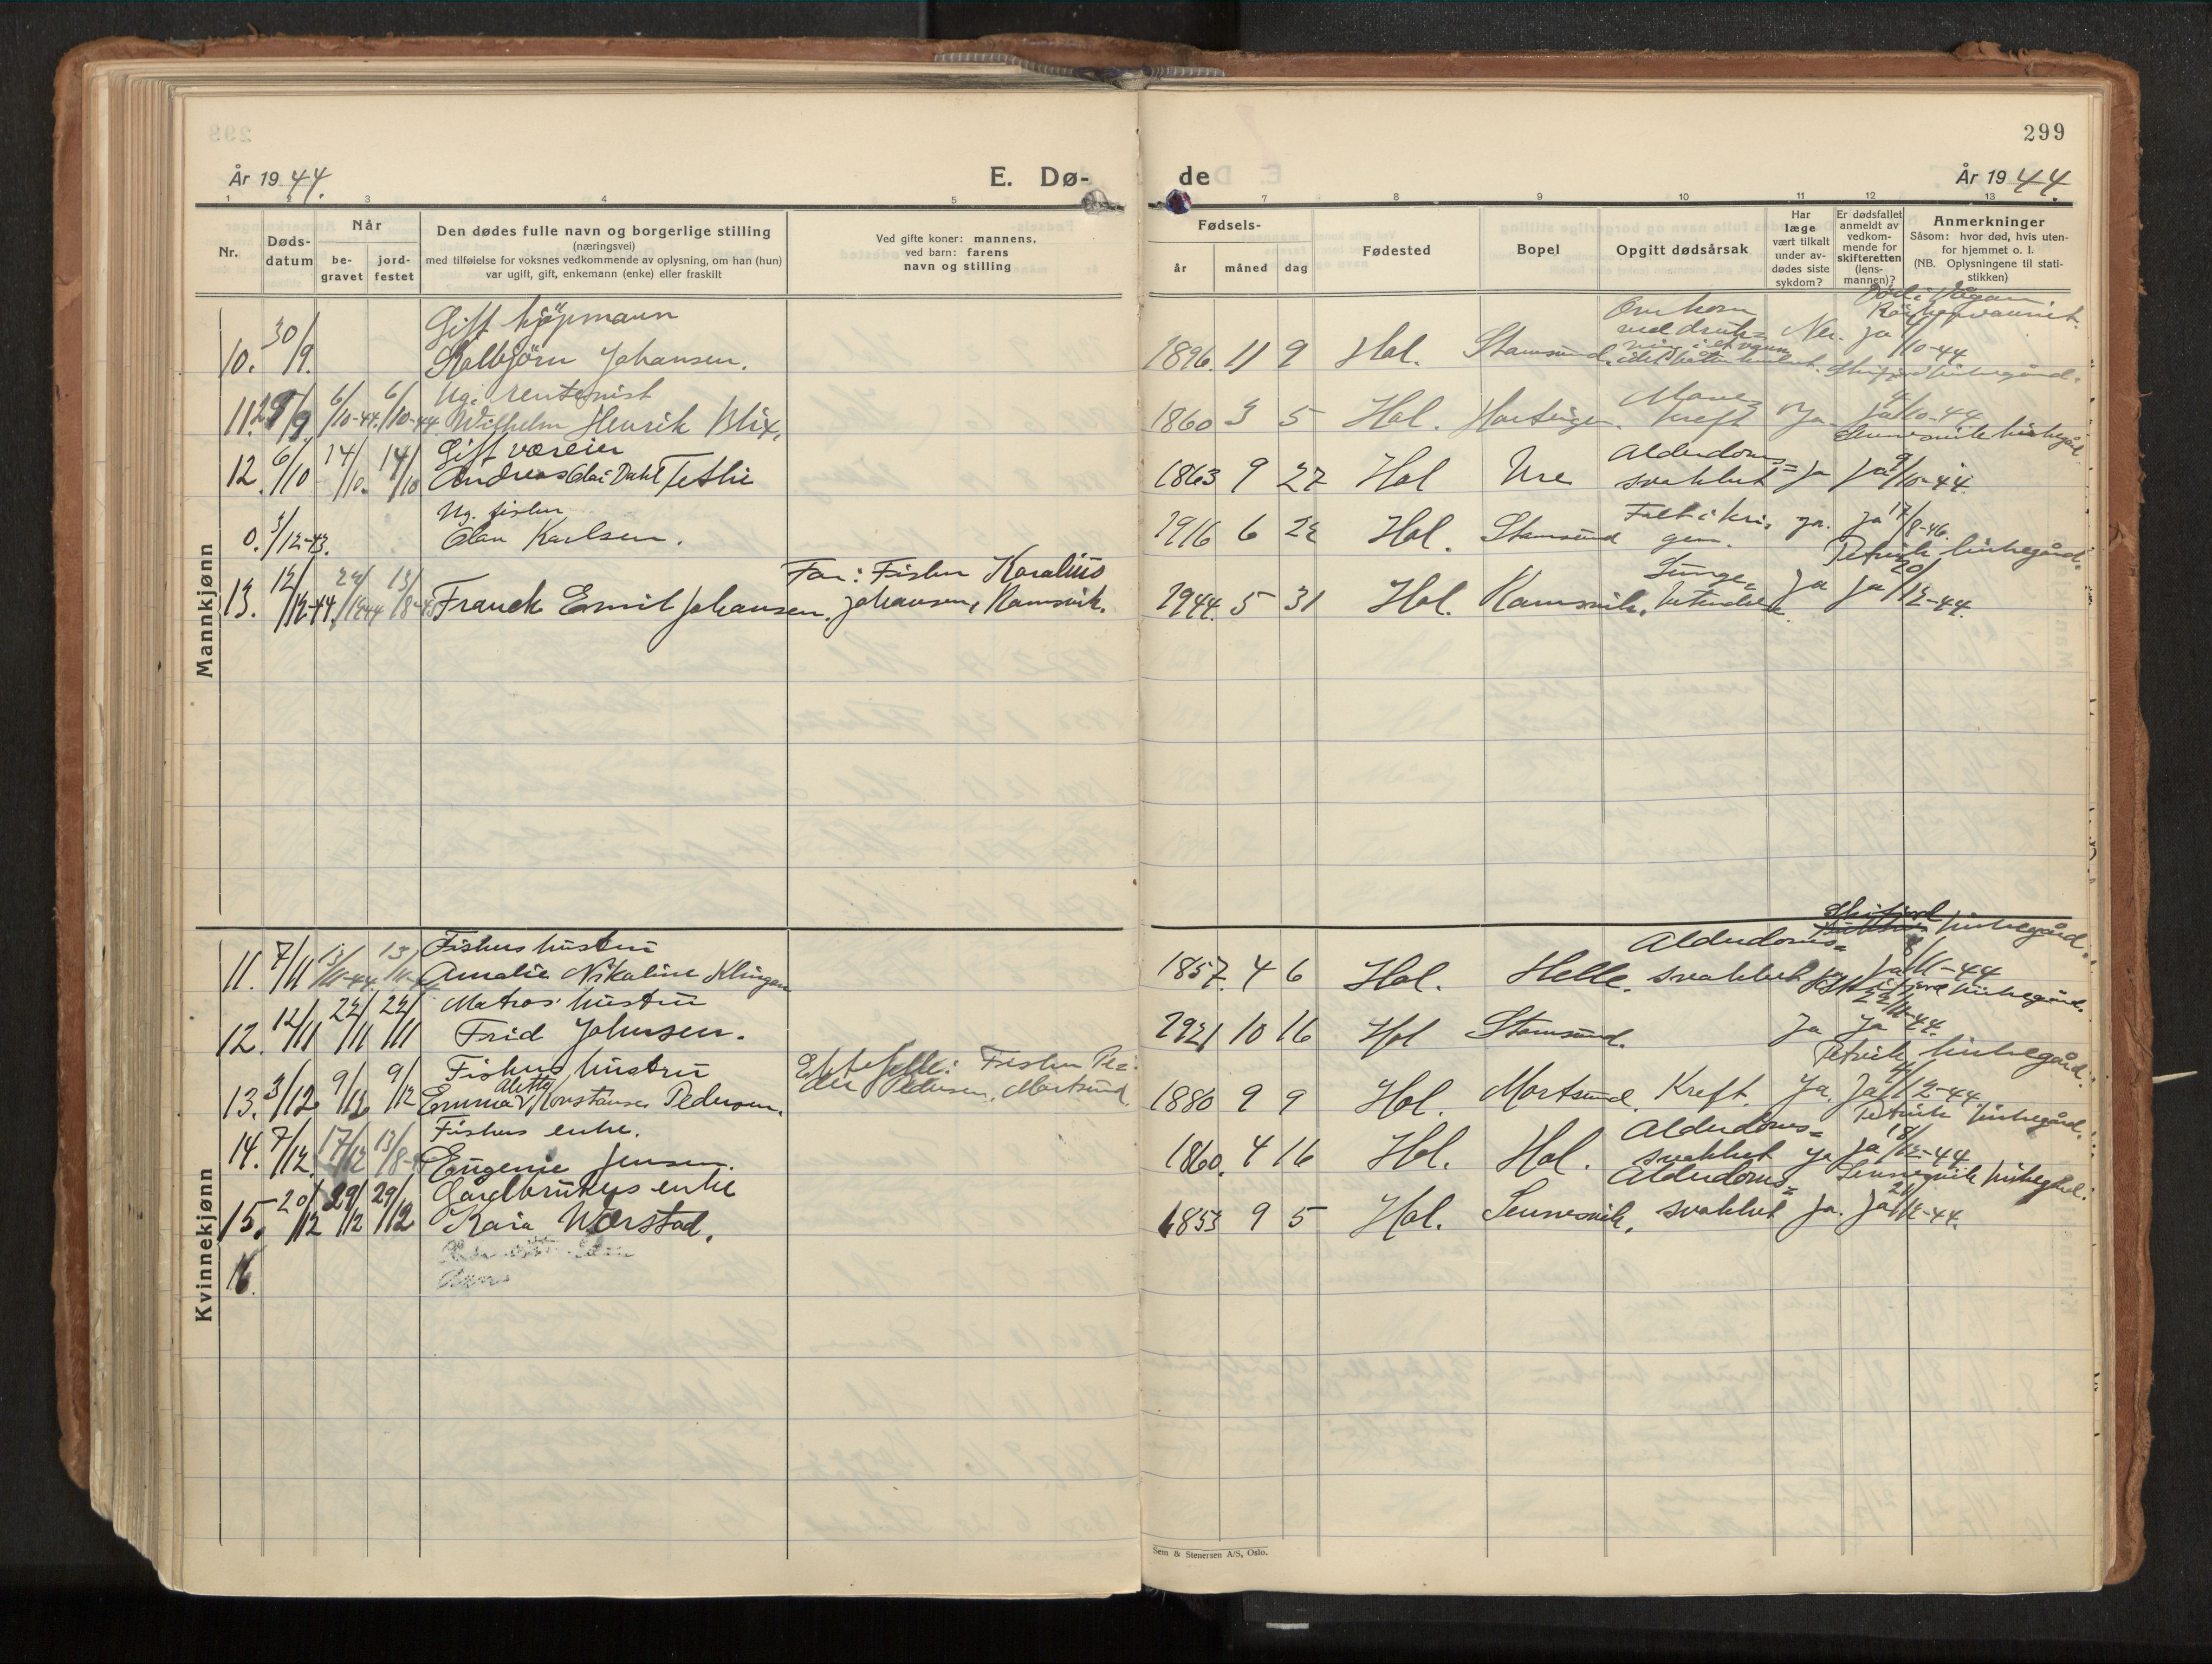 299
År 1944.
E. Dø-
de
År 1944.
1 2 3 4 5
7 8 9 10 11 12 13
Nr.
Døds-
datum
Når
be-
gravet
jord-
festet
Den dødes fulle navn og borgerlige stilling
(næringsvei)
med tilføielse for voksnes vedkommende av oplysning, om han (hun)
var ugift, gift, enkemann (enke) eller fraskilt
Ved gifte koner: mannens,
ved barn: farens
navn og stilling
Fødsels-
år
måned
dag
Fødested
Bopel
Opgitt dødsårsak
Har
læge
vært tilkalt
under av-
dødes siste
sykdom?
Er dødsfallet
anmeldt av
vedkom-
mende for
skifteretten
(lens-
mannen)?
Anmerkninger
Såsom: hvor død, hvis uten-
for hjemmet o. l.
(NB. Oplysningene til stati-
stikken)
Mannkjønn
Gift kjøpmann
10. 30/9. Kolbjörn Johansen. 1896. 11 9 Hol. Stamsund. Omkom ved druk= Nei. ja /10-44
Ug. rentenist
11. 29/9. 6/10-44. 6/10-44 Wilhelm Henrik Blix. 1860 3 5 Hol. Mave= kreft Ja. ja /10-44
Gift væreier
Sennesvik kirkegård.
12. 6/10 14/10. 14/10 Andreas Olai Dahl 1863 9 27 Hol Ure Alderdoms= svakhet ja ja 9/10-44.
Ug. fisker
0. 3/12-43. Olav Karlsen. 1916 6 22 Hol. Stamsund Falt i kri= gen. ja. ja 17/8-46.
Petvik kirkegård.
Far: Fisker Koralius
13. 12/12-44. 13/8-45 Franck Emil Johansen. Johansen, Ramsvik. 1944. 5 31 Hol. Ramsvik. Lunge= betendelse. ja ja 20/12-44.
Kvinnekjønn
Fiskers hustru
kirkegård.
11. 7/11 13/11-44. 13/11-44 Amalie Nikaline Klingen 1857. 4 6 Hol. Helle. Alderdoms= svakhet ja 8/11-44
Matros' hustru
kirkegård.
12. 12/11 22/11 22/11 Frid Johnsen. 1921 10 16 Hol Stamsund. Ja ja 22/11-44.
Fiskers hustru
Ektefelle: Fisker Pe=
Petvik kirkegård.
13. 3/12 9/12 9/12 Emma Aletta Konstanse Pedersen. der Pedersen, Mortsund. 1880 9 9 Hol. Mortsund. Kreft. Ja. Ja 4/12-44
Fiskers enke.
Petvik kirkegård.
14. 7/12. 17/12 13/8- Eugenie Jensen. 1860. 4 16 Hol. Hol. Alderdoms= svakhet ja ja 18/12-44
Gårdbrukers enke
Sennesvik kirkegård.
15. 20/12 29/12 29/12 Kaia Wærstad. 1853 9 5 Hol. Sennesvik. Alderdoms= svakhet ja. ja 21/12-44.
16.
Sem & Stenersen A/S, Oslo.